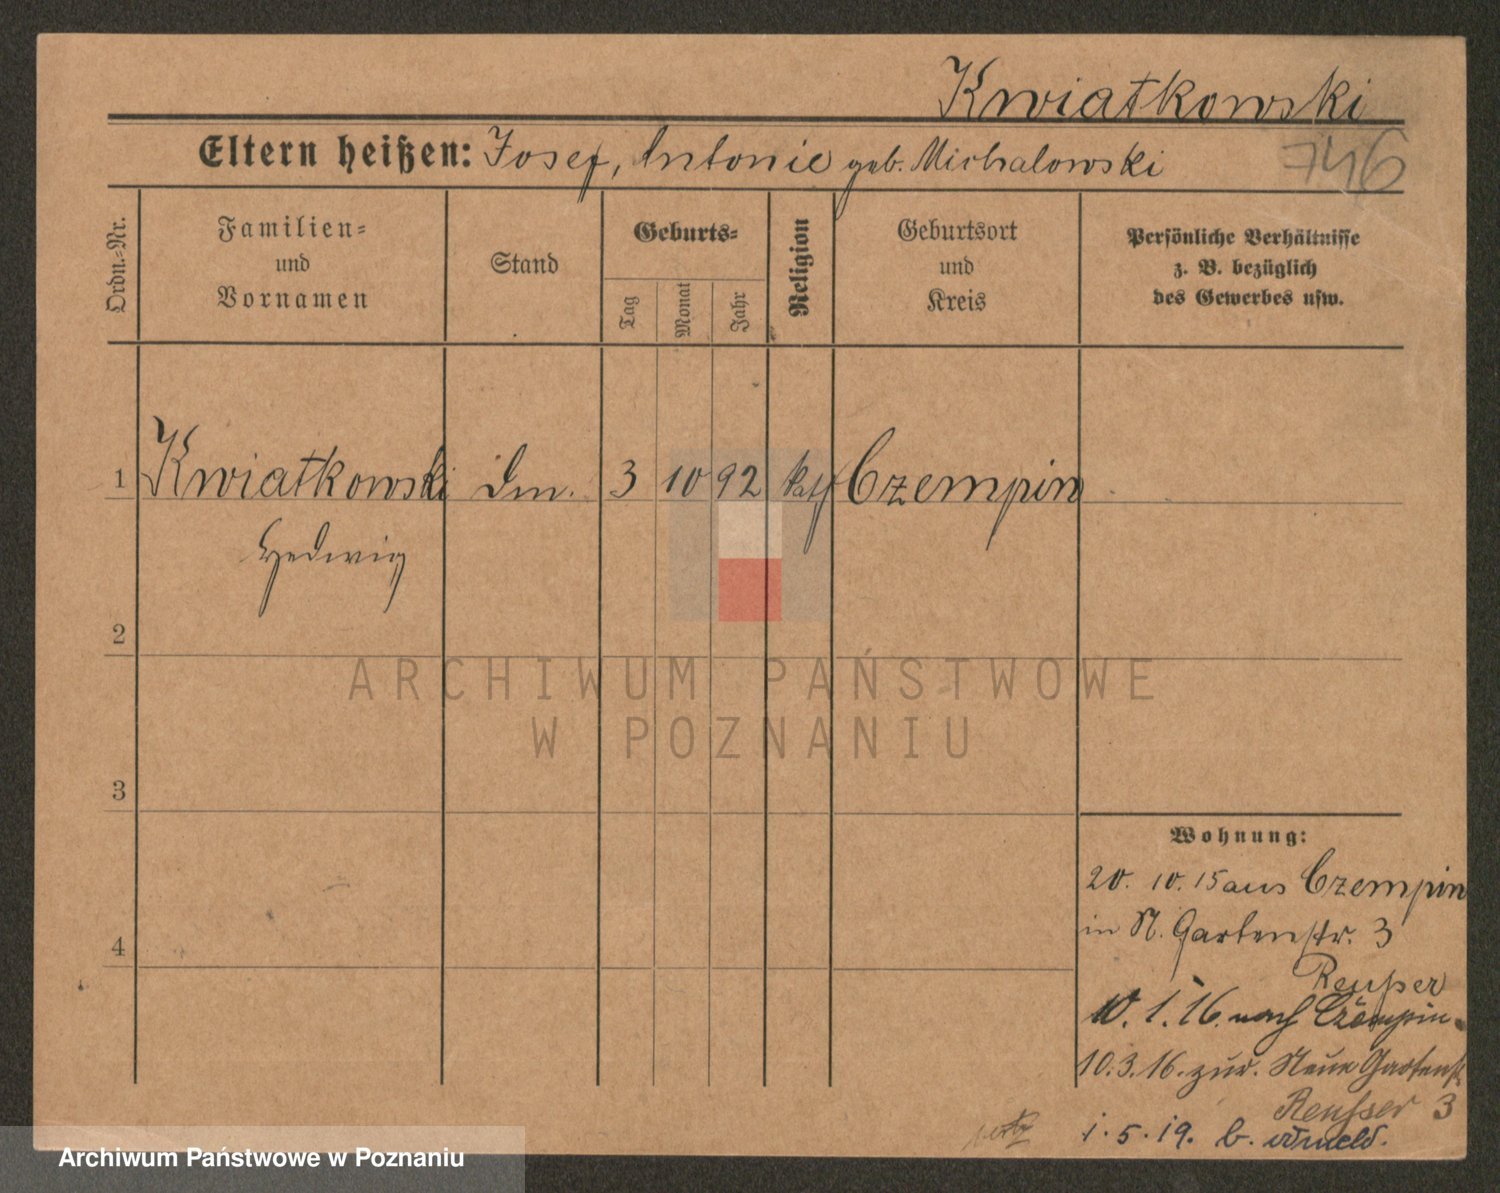 Kwiatkowski
Eltern heißen: Josef, Antonie geb. Michalowski
746
Ordn.-Nr.
Familien-
und
Vornamen
Stand
Geburts-
Tag
Monat
Jahr
Religion
Geburtsort
und
Kreis
Persönliche Verhältnisse
z. B. bezüglich
des Gewerbes usw.
1 Kwiatkowski 3 10 92 kath Czempin
Hedwig
2
ARCHIWUM PAŃSTWOWE
W POZNANIU
3
Wohnung:
20. 10. 15 aus Czempin
in N. Gartenstr. 3
4
Reusser
10. 1. 16. nach Czempin.
10. 3. 16. zur. Neue Gartenst
Reusser 3
1. 5. 19. b.
Archiwum Państwowe w Poznaniu